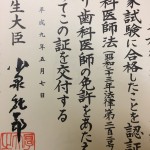 家試験に合格したことを認証
科医師法(昭和二十三年法律第二百二号
り歯科医師の免許をあたえ
てこの証を交付する
平成九年五月七日
生大臣 小泉純一郎